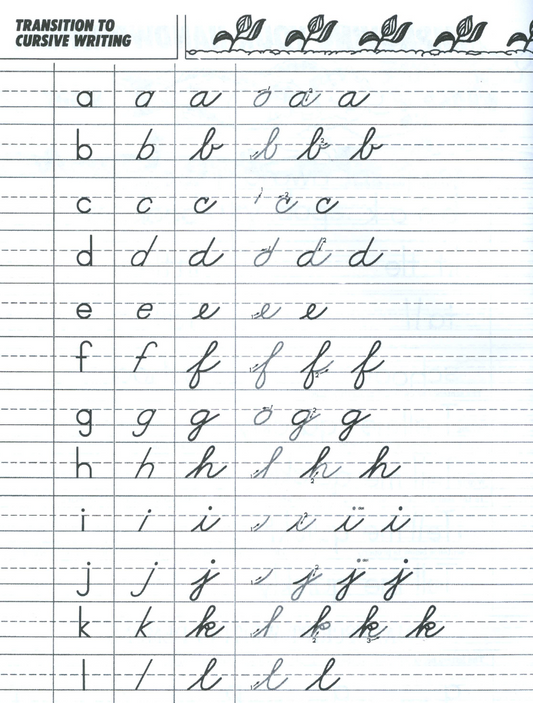 TRANSITION TO
CURSIVE WRITING
a a a a a a
b b b b b b
c c c c c
d d d d d d
e e e e e
f f f f f f
g g g g g
h h h h h h
i i i i i i
j j j j j j
k k k k k k k
l l l l l